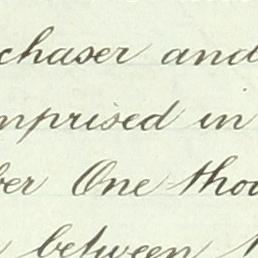 chaser and
mprised in
ber One thou
between